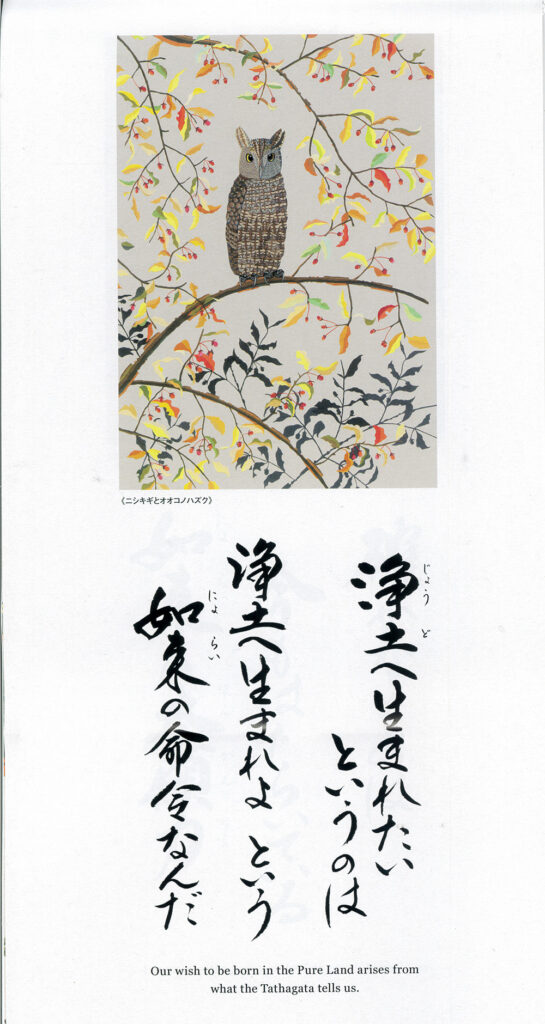 《ニシキギとオオコノハズク》
浄土へ生まれたい
じょうど
というのは
浄土へ生まれよ という
如来の命令なんだ
にょらい
Our wish to be born in the Pure Land arises from
what the Tathagata tells us.